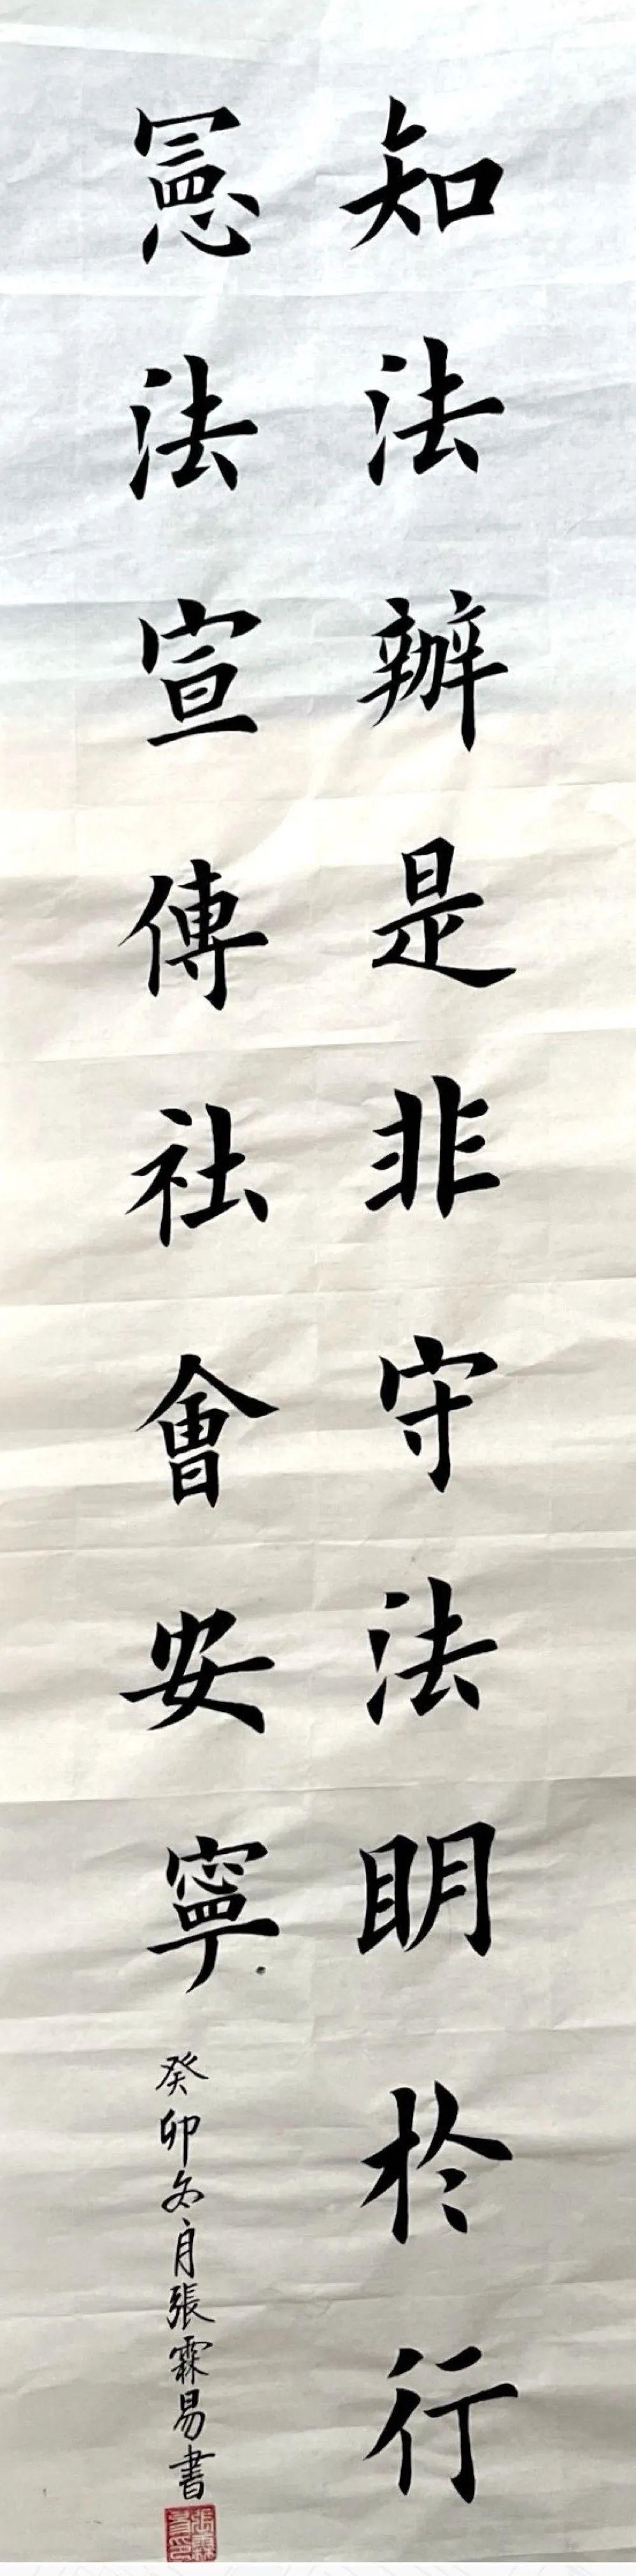 知法辦是非守法明於行
憲法宣傳社會安寧
癸卯冬月張霖易書
張霖易印